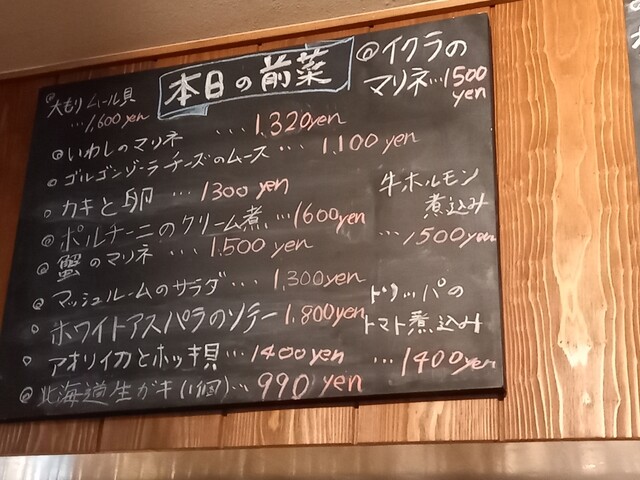 本日の前菜
大もりムール貝
…1,600yen
いわしのマリネ …1,320yen
ゴルゴンゾーラチーズのムース …1,100yen
カキと卵 …1300yen
ポルチーニのクリーム煮 …1600yen
蟹のマリネ …1,500yen
マッシュルームのサラダ …1,300yen
ホワイトアスパラのソテー 1,800yen
アオリイカとホッキ貝…1400yen
北海道生ガキ(1個)…990yen
イクラの
マリネ…1500
yen
牛ホルモン
煮込み
…1500yen
トリッパの
トマト煮込み
…1400yen